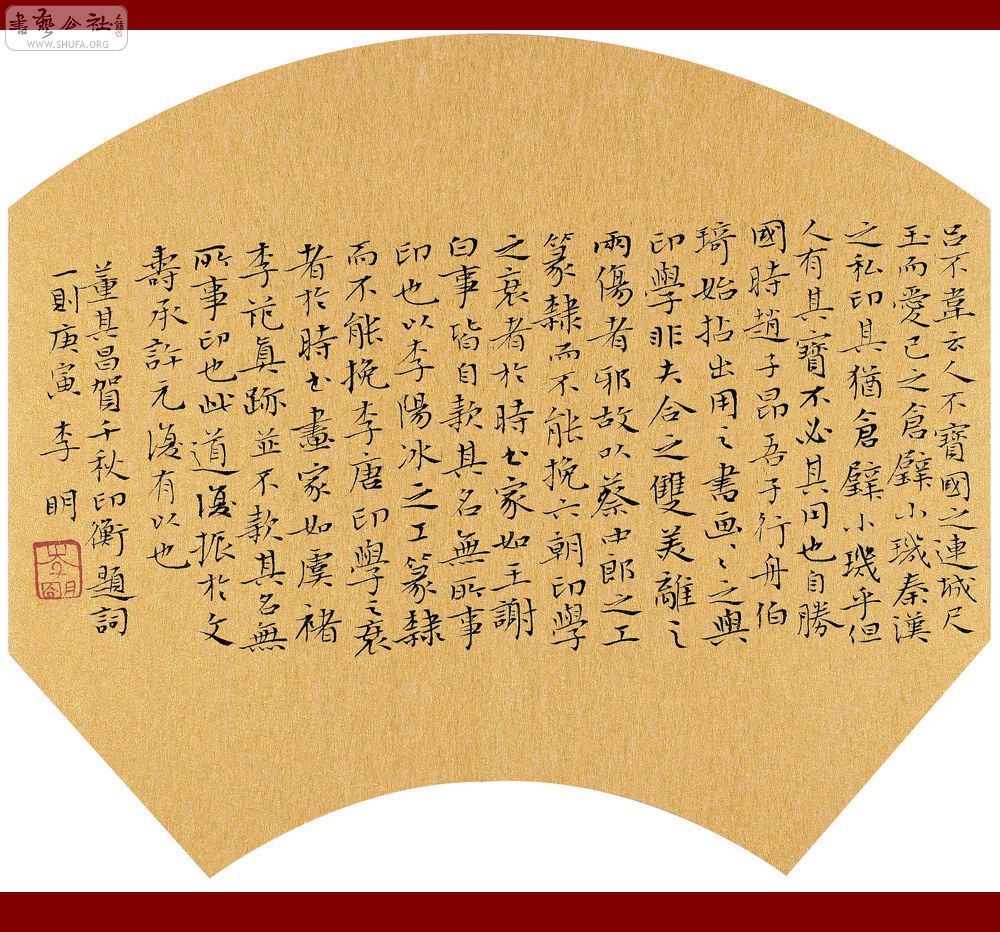 書藝公社
WWW.SHUFA.ORG
呂不韋云人不寶國之連城尺
玉而愛己之倉璧小璣秦漢
之私印其猶倉璧小璣乎但
人有其寶不必其同也自勝
國時趙子昂吾子行舟伯
琦始拈出用之書画〻之與
印學非夫合之雙美離之
兩傷者邪故以蔡中郎之工
篆隸而不能挽六朝印學
之衰者於時書家如王謝
白事皆自款其名無所事
印也以李陽冰之工篆隸
而不能挽李唐印學之衰
者於時書畫家如虞褚
李范真跡並不款其名無
所事印也此道復振於文
壽承許元復有以也
董其昌賀千秋印衡題詞
一則庚寅 李明
李明